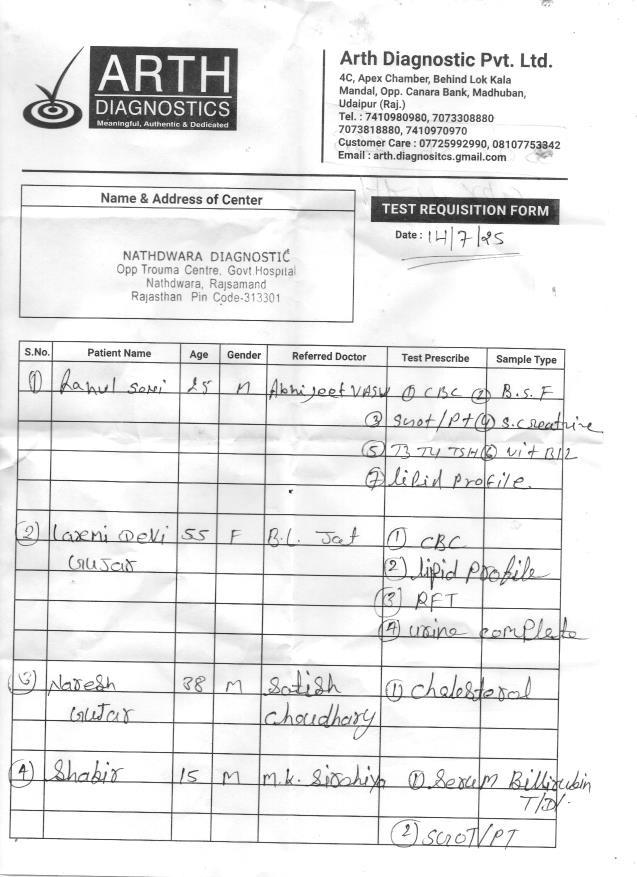 ARTH
DIAGNOSTICS
Meaningful, Authentic & Dedicated
Arth Diagnostic Pvt. Ltd.
4C, Apex Chamber, Behind Lok Kala
Mandal, Opp. Canara Bank, Madhuban,
Udaipur (Raj.)
Tel. : 7410980980, 7073308880
7073818880, 7410970970
Customer Care : 07725992990, 08107753342
Email : arth.diagnositcs.gmail.com
Name & Address of Center
NATHDWARA DIAGNOSTIC
Opp Trouma Centre, Govt.Hospital
Nathdwara, Rajsamand
Rajasthan Pin Code-313301
TEST REQUISITION FORM
Date : 14/7/25
S.No. Patient Name Age Gender Referred Doctor Test Prescribe Sample Type
① Rahul Soni 25 M Abhijeet VASU ① CBC ② B.S.F
③ SGOT/PT ④ S.creatrine
⑤ T3 T4 TSH ⑥ Vit B12
⑦ lipid Profile.
② Laxmi Devi 55 F B.L. Jat ① CBC
Gujar ② lipid Profile
③ RFT
④ urine complete
③ Naresh 38 M Satish ① Cholesteral
Gujar Choudhary
④ Shabir 15 M M.K. Sirohiya ① Serum Billirubin
T/D/.
② SGOT/PT